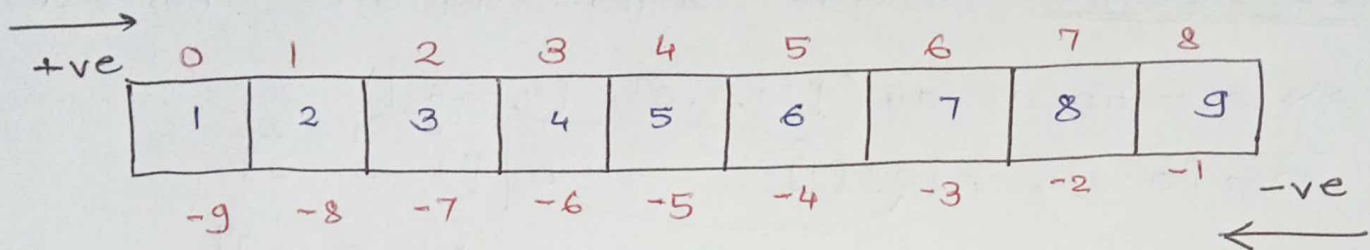 +ve 0 1 2 3 4 5 6 7 8
1 2 3 4 5 6 7 8 9
-9 -8 -7 -6 -5 -4 -3 -2 -1 -ve